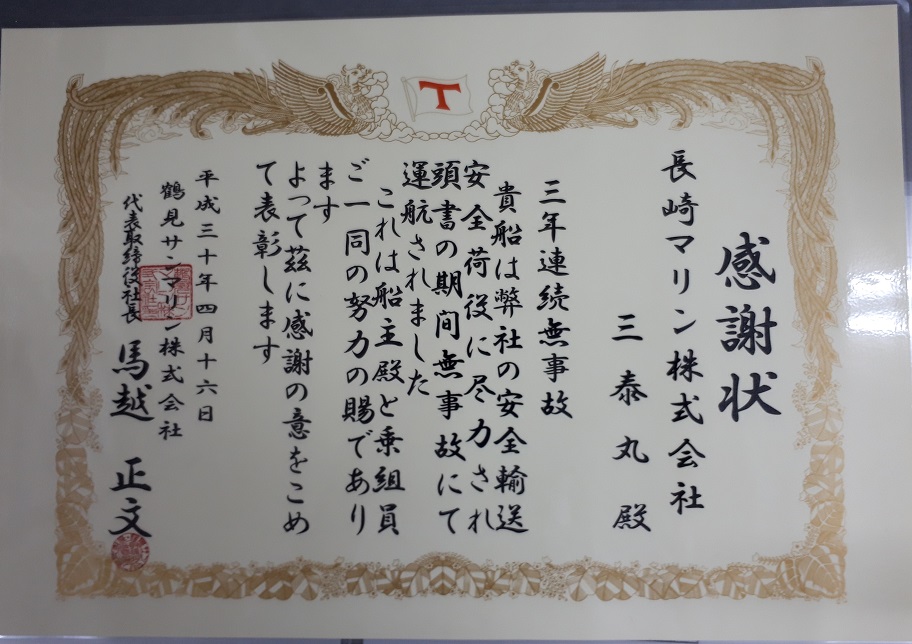 T
感謝状
長崎マリン株式会社
三泰丸殿
三年連続無事故
貴船は弊社の安全輸送
安全荷役に尽力され
頭書の期間無事故にて
運航されました
これは船主殿と乗組員
ご一同の努力の賜であり
ます
よって茲に感謝の意をこめ
て表彰します
平成三十年四月十六日
鶴見サンマリン株式会社
代表取締役社長 馬越 正文